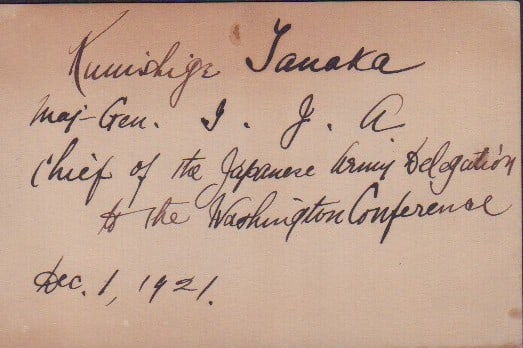 Kunishige Tanaka
Maj-Gen. I. J. A
Chief of the Japanese Army Delegation
to the Washington Conference
Dec. 1, 1921.